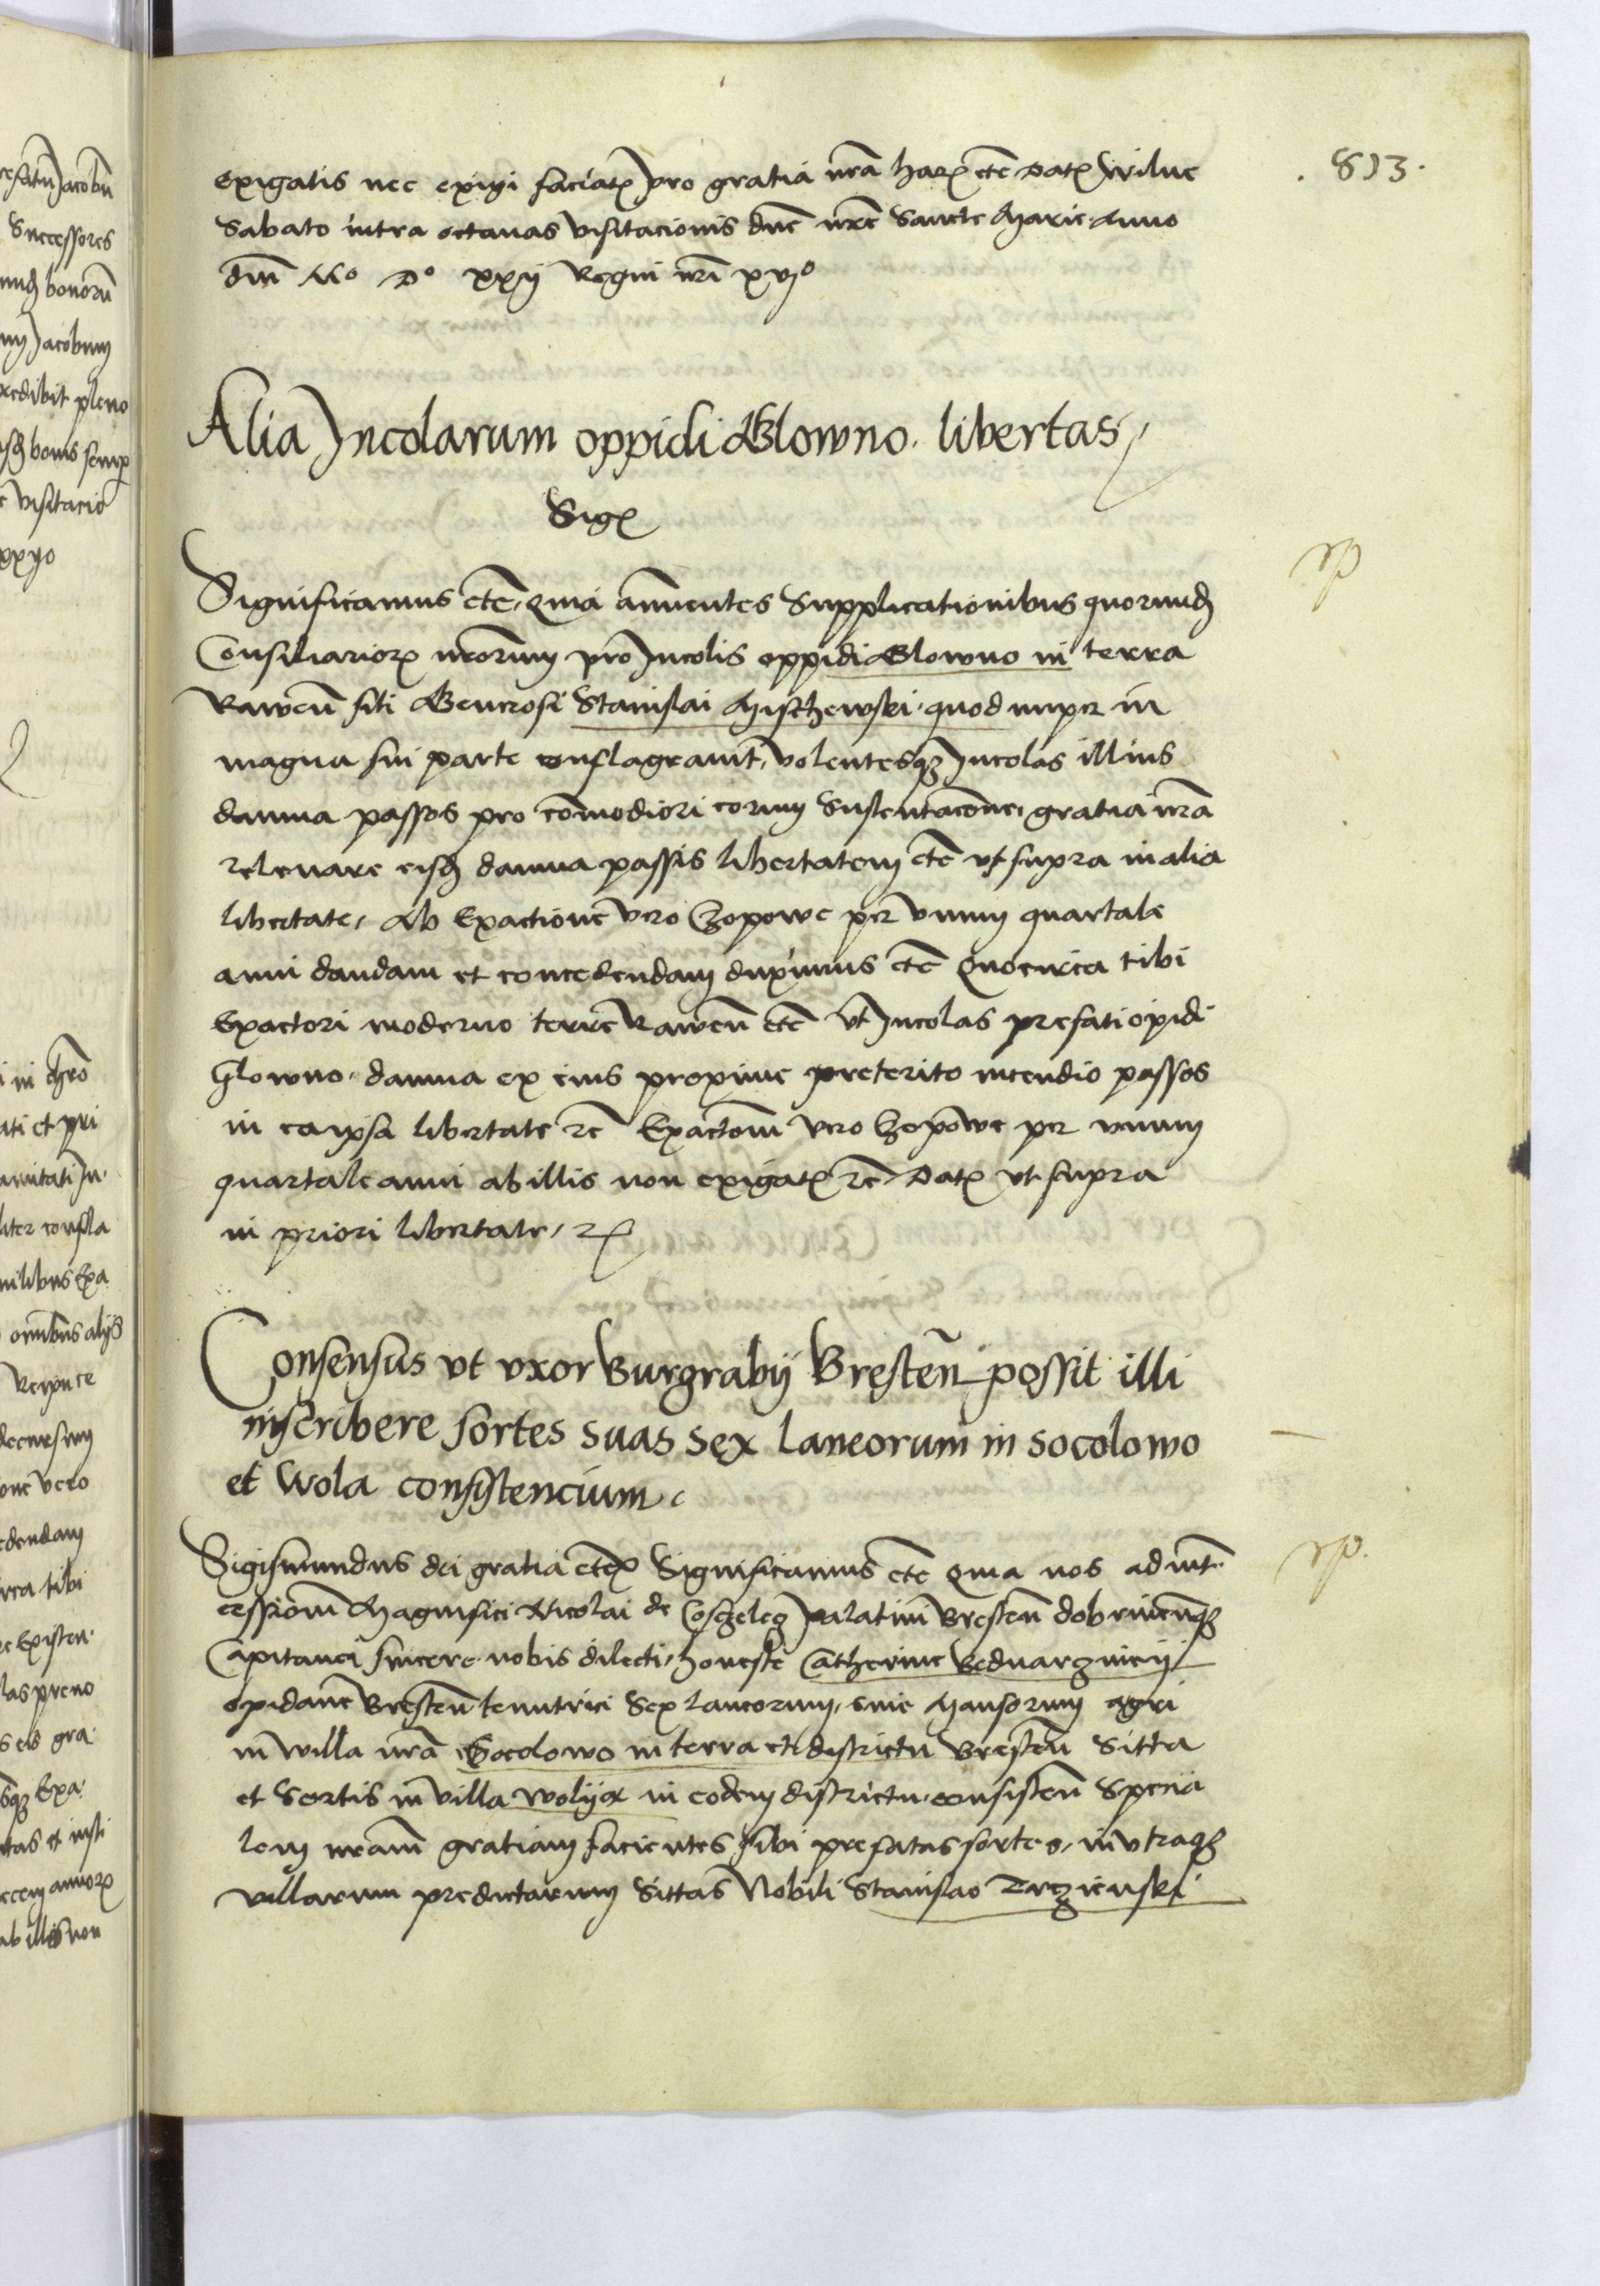 .813.
exigatis nec exigi faciatꝭ pro gratia nrã harꝭ etc̃ Datꝭ Wilne
Sabato intra octauas visitacionis dnẽ nrẽ Sancte Marie Anno
dnĩ Mᵒ Dᵒ xxij Regni nrĩ xvjᵒ
Alia Incolarum oppidi Glowno libertas
Sigꝭ
Significamus etc̃ Quia annuentes Supplicationibus quorundꝫ
Consiliariorꝭ nrorum pro Incolis oppidi Glowno in terra
Raweñ siti Generosi Stanislai Mischewski quod nuper in
magna sui parte conflagrauit, volentesqꝫ Incolas illius
damna passos pro cõmodiori eorum Sustentacõne gratia nrã
releuare eisdꝫ damna passis libertatem etc̃ vt supra in alia
libertate, Ab Exactione vero Czopowe per vnum quartale
anni dandam et concedendam duximus etc̃ Quocirca tibi
Exactori moderno terre Raweñ etc̃ vt Incolas prefati opidi
Glowno damna ex eius proxime preterito incendio passos
in ea ipsa libertate rc̃ Exactom̃ vero Czopowe per vnum
quartale anni ab illis non exigatꝭ rc̃ Datꝭ vt supra
in priori libertate, rꝭ
Consensus vt vxor Burgrabij Bresteñ possit illi
inscribere sortes suas sex laneorum in socolowo
et wola consistencium
Sigismundus dei gratia etcꝭ Significamus etc̃ Quia nos ad int̃
cessionem̃ Magnifici Nicolai de Coscheleꝫ palatini Bresteñ dobrineñqꝫ
Capitanei sincere nobis dilecti, honeste Catherine Bednarzniey
opidane Bresteñ tenutrici Sex laneorum, siue Mansorum agri
in villa nrã Socolowo in terra et districtu Bresteñ Sitta
et Sortis in villa Wolya in eodem districtu consisteñ Specia
lem nram̃ gratiam facientes sibi prefatas sortes, in vtraqꝫ
villarum predictarum Sittas Nobili Stanislao Trzienski